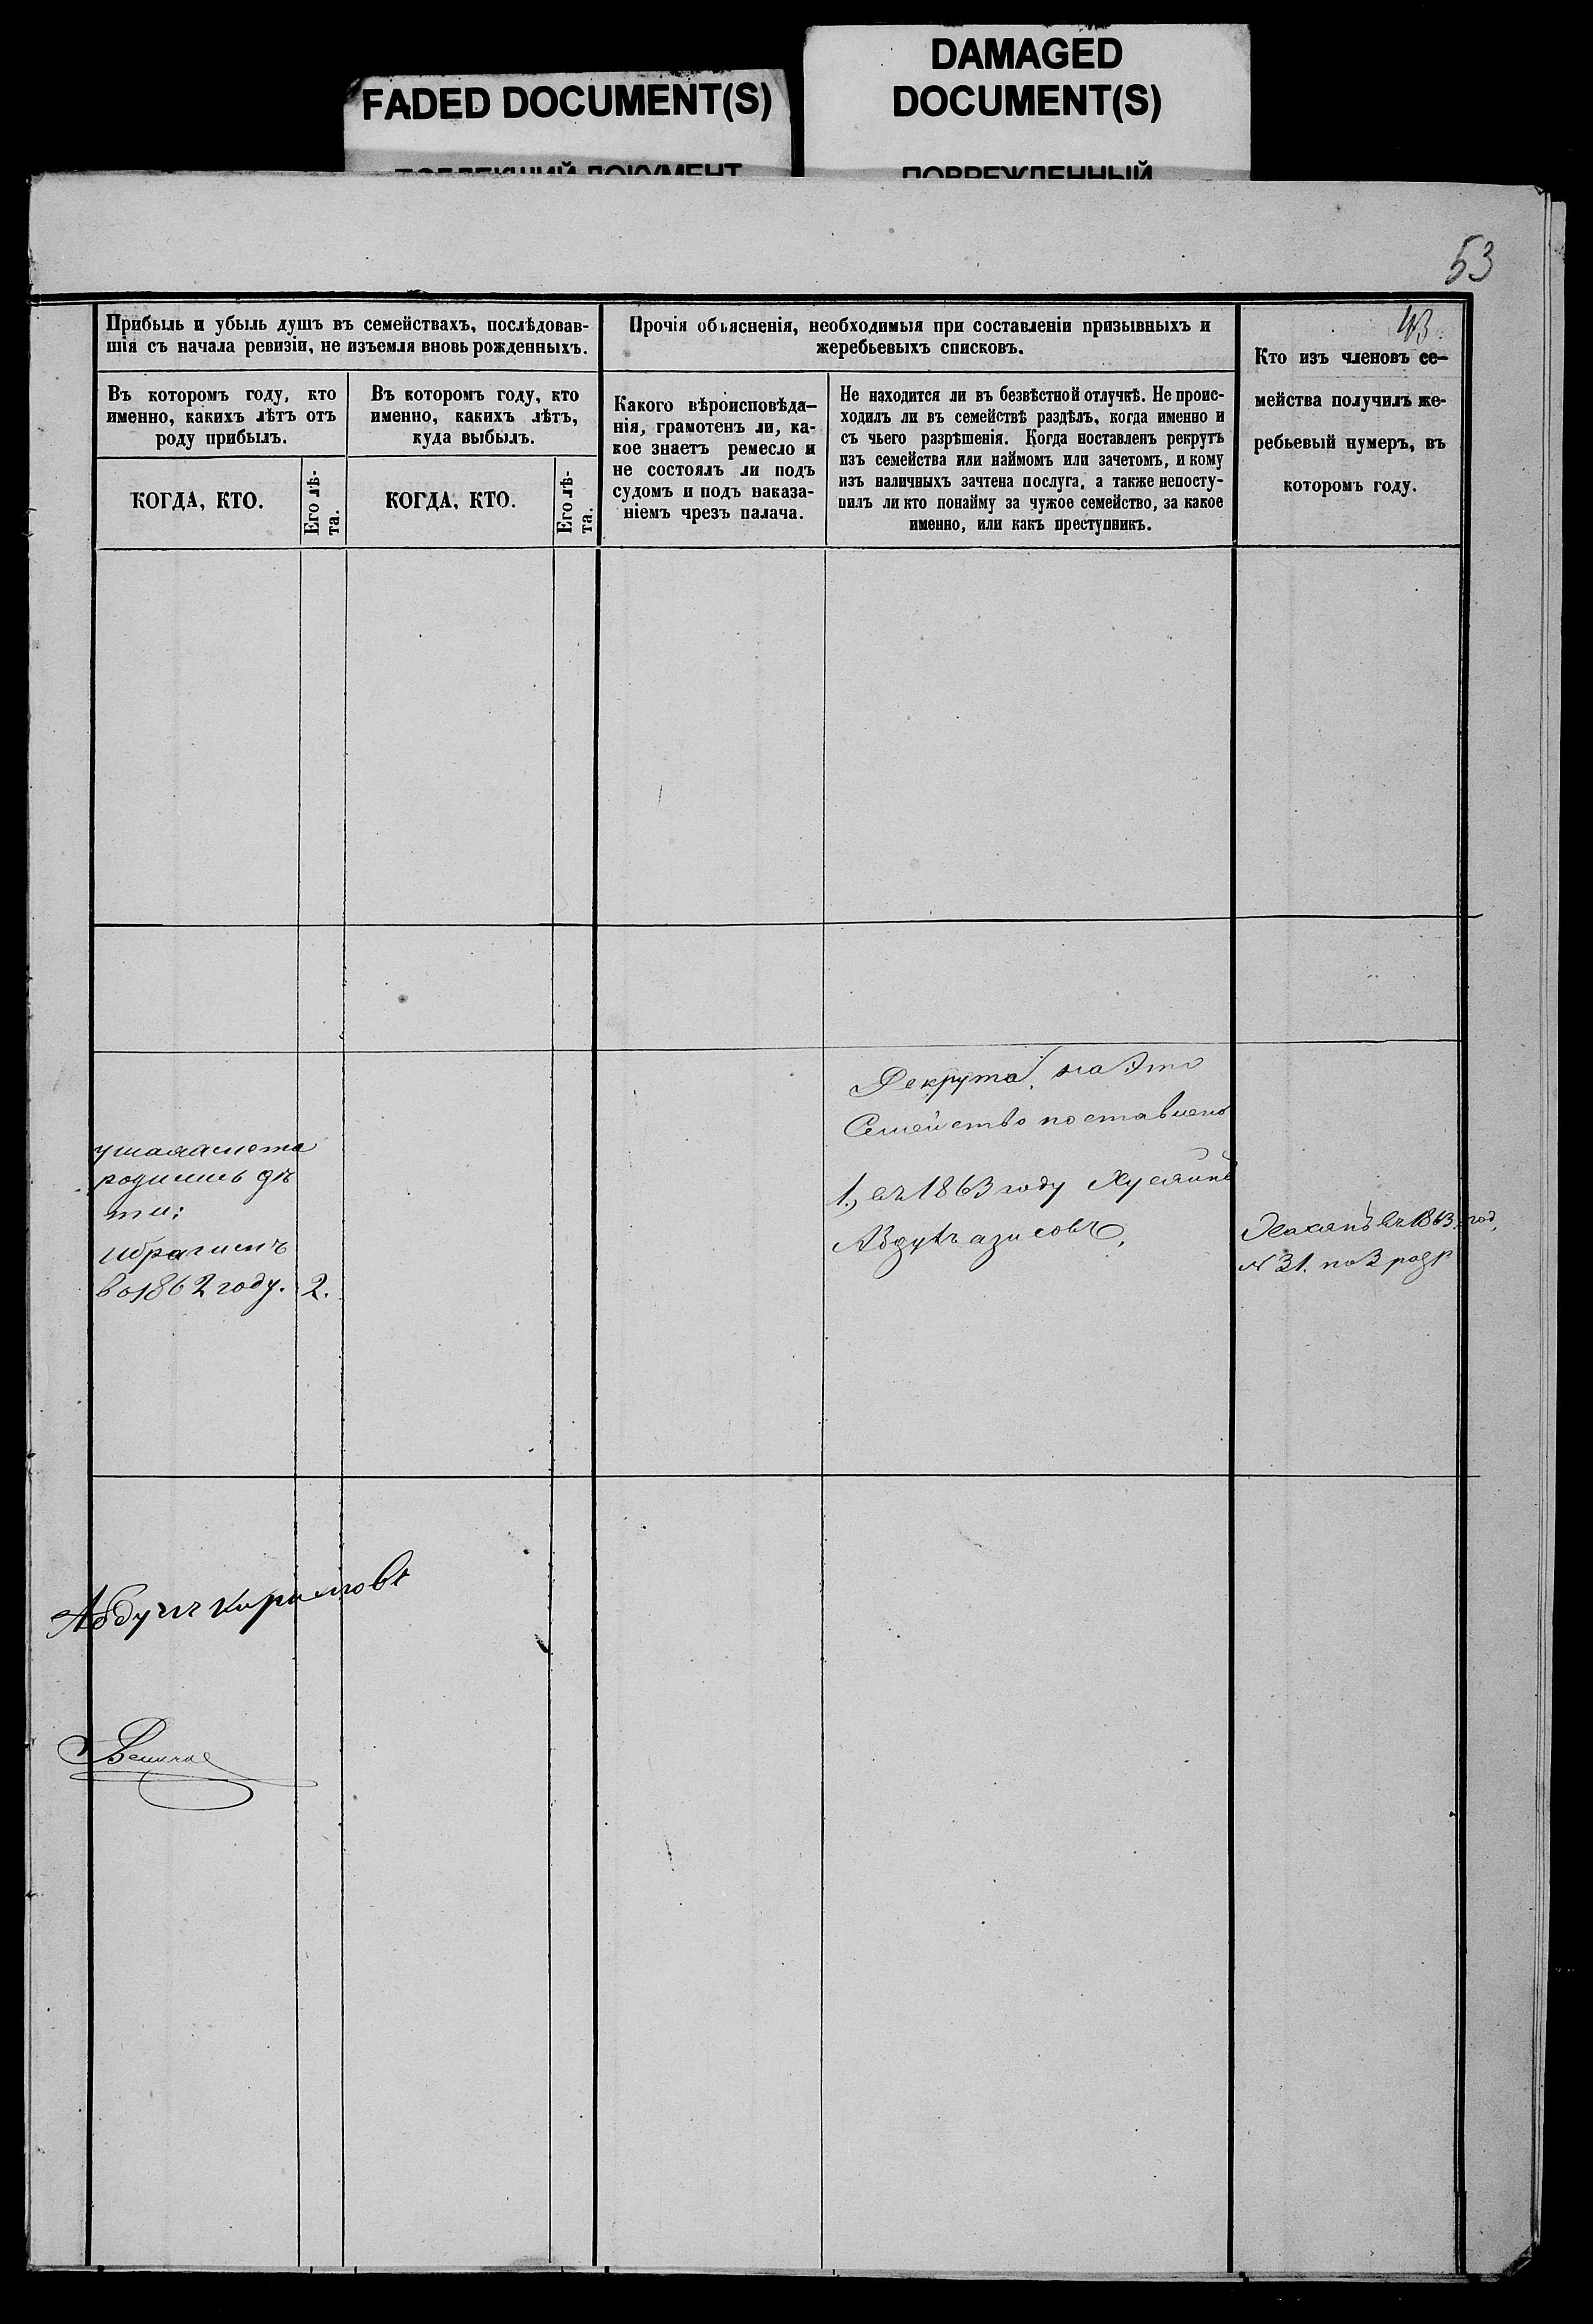 FADED DOCUMENT(S)
DAMAGED
DOCUMENT(S)
53
43
Прибыль и убыль душъ въ семействахъ, послѣдовав-
шія съ начала ревизіи, не изъемля вновь рожденныхъ.
Въ которомъ году, кто
именно, какихъ лѣтъ отъ
роду прибылъ.
КОГДА, КТО.
Его лѣ-
та.
Въ которомъ году, кто
именно, какихъ лѣтъ,
куда выбылъ.
КОГДА, КТО.
Его лѣ-
та.
Прочія объясненія, необходимыя при составленіи призывныхъ и
жеребьевыхъ списковъ.
Какого вѣроисповѣда-
нія, грамотенъ ли, ка-
кое знаетъ ремесло и
не состоялъ ли подъ
судомъ и подъ наказа-
ніемъ чрезъ палача.
Не находится ли въ безвѣстной отлучкѣ. Не проис-
ходилъ ли въ семействѣ раздѣлъ, когда именно и
съ чьего разрѣшенія. Когда поставленъ рекрутъ
изъ семейства или наймомъ или зачетомъ, и кому
изъ наличныхъ зачтена послуга, а также непосту-
пилъ ли кто понайму за чужое семейство, за какое
именно, или какъ преступникъ.
Кто изъ членовъ се-
мейства получилъ же-
ребьевый нумеръ, въ
которомъ году.
родились дѣ
ти:
Ибрагимъ
во 1862 году. 2.
Рекрута на Это
Семейство поставлено
1, въ 1863 году Хусаинъ
Абдулъазисовъ,
въ 1863 год,
№ 31. по 3 разр
Абдулъ Каримовъ